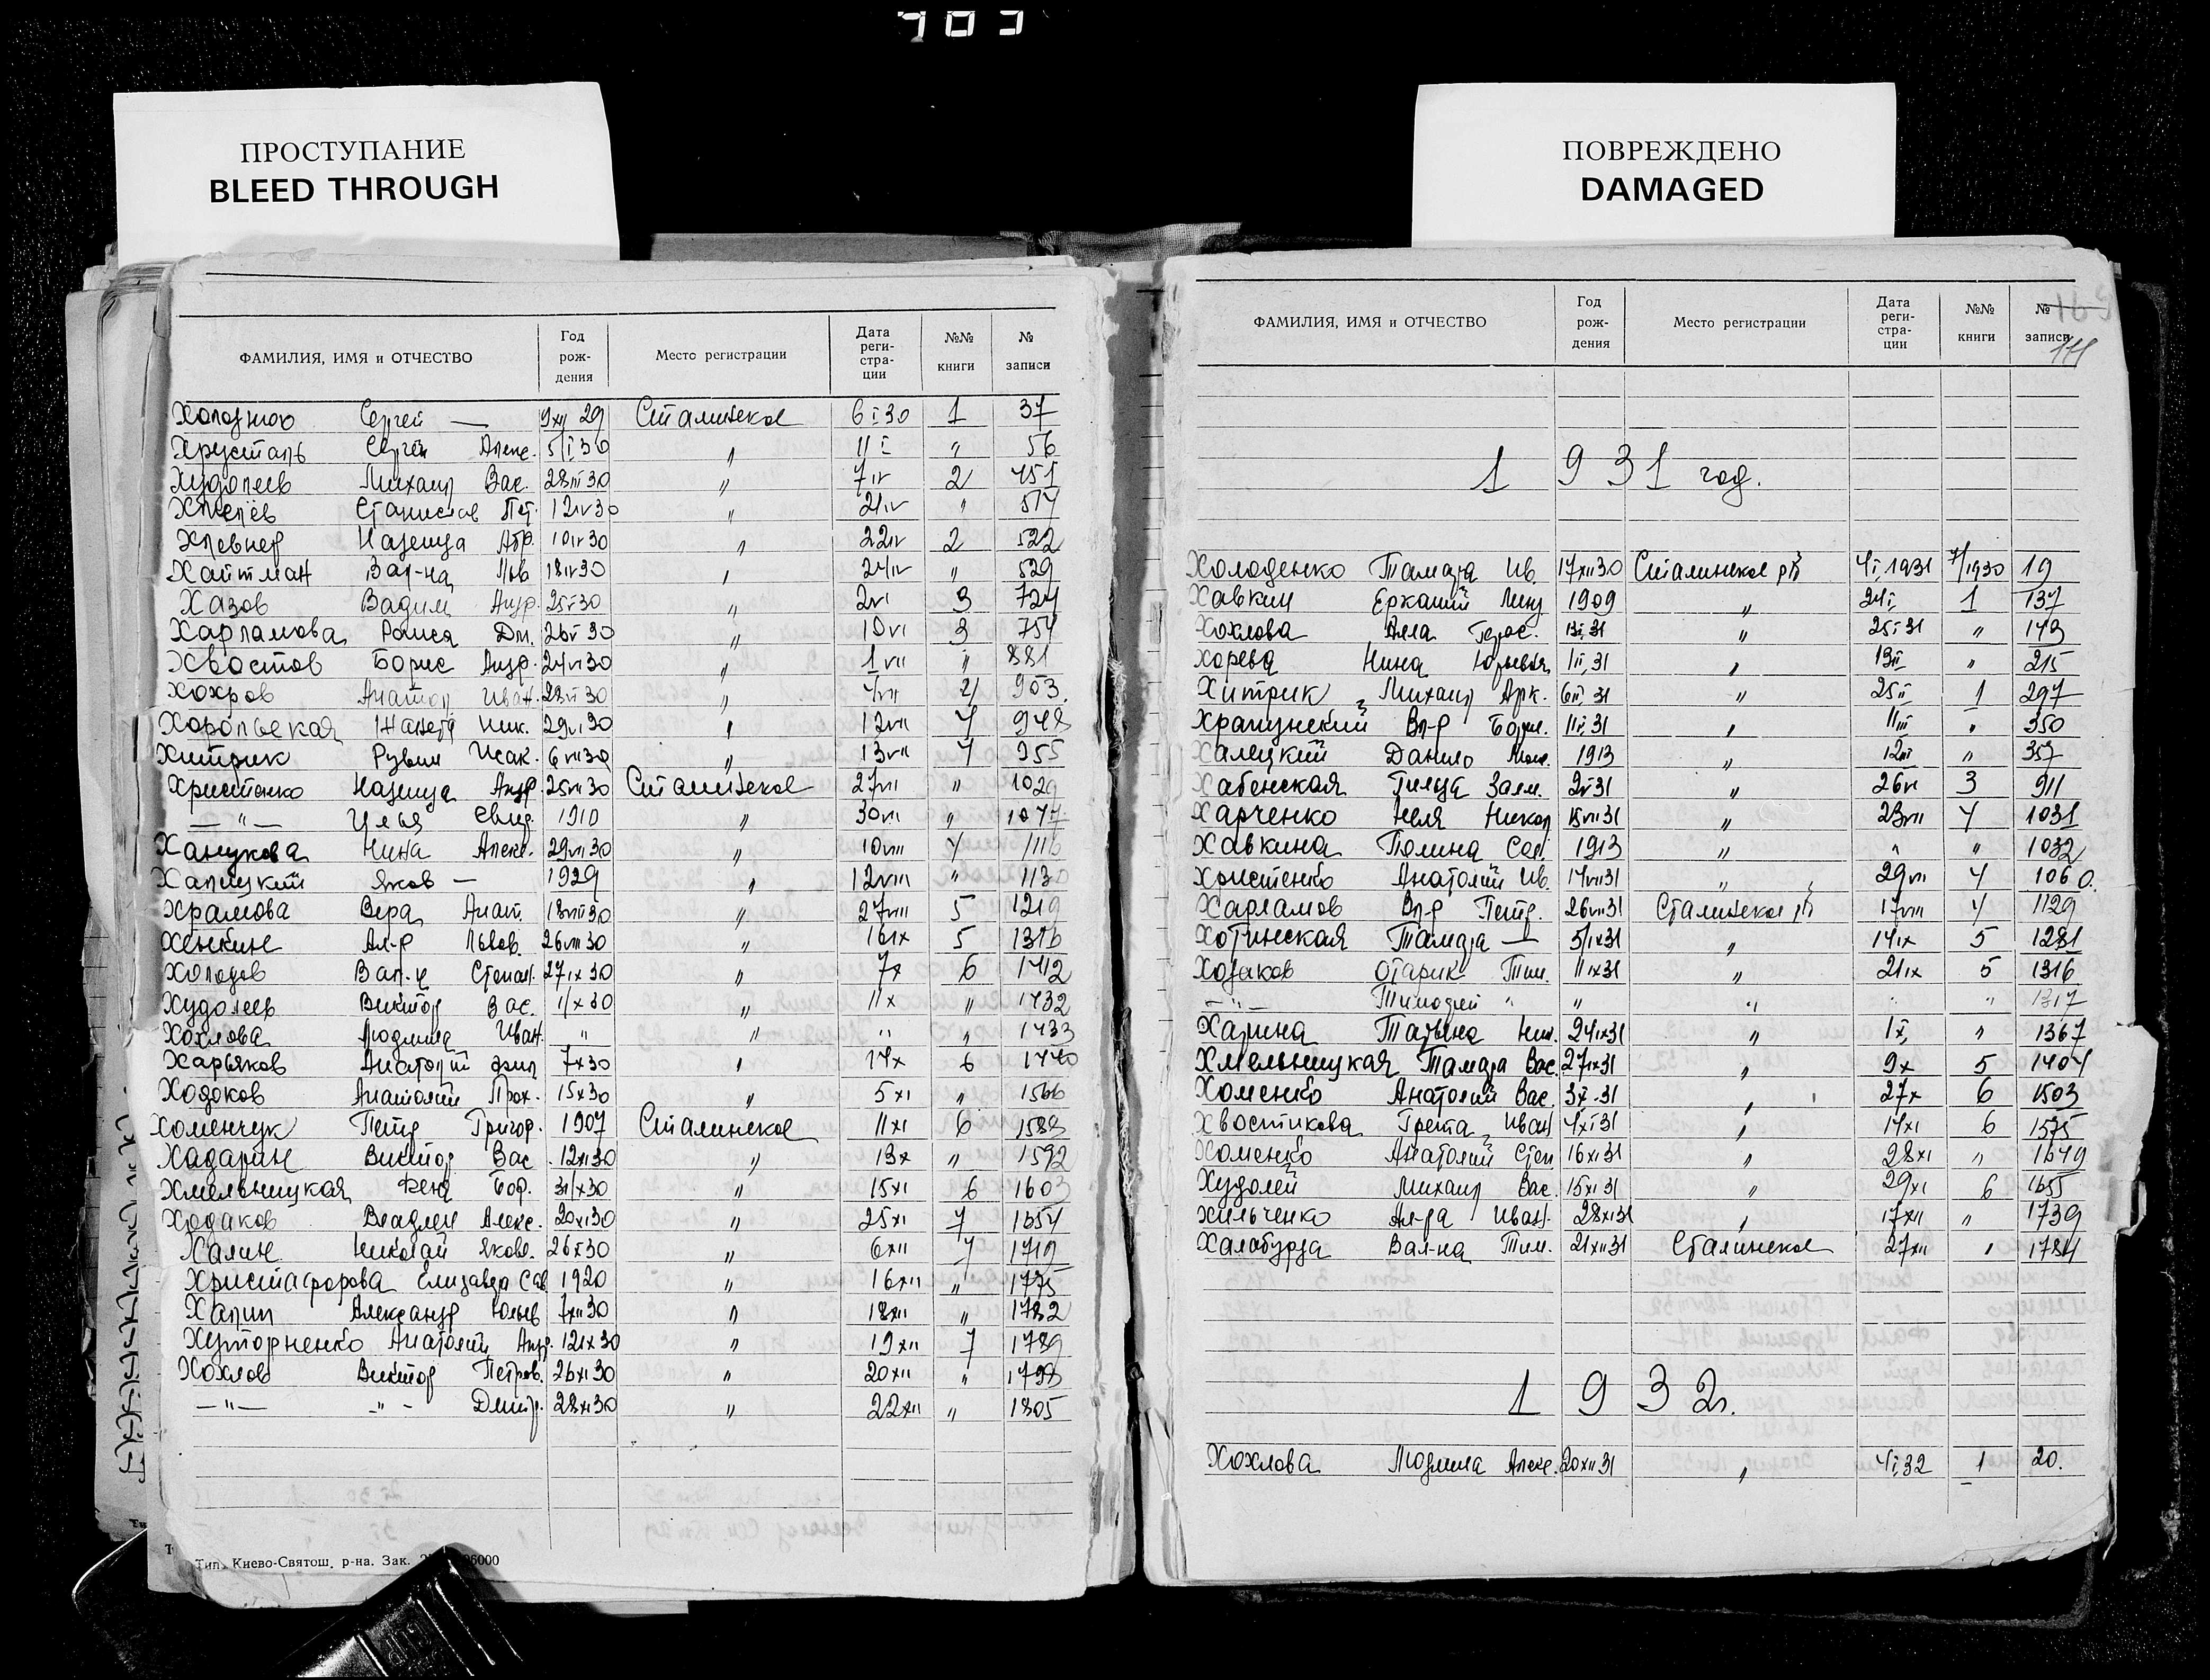 703
ПРОСТУПАНИЕ
BLEED THROUGH
ПОВРЕЖДЕНО
DAMAGED
ФАМИЛИЯ, ИМЯ и ОТЧЕСТВО Год рождения Место регистрации Дата регистрации №№ книги № записи
Сергей — 9 XII 29 Сталинское 6 I 30 1 37
Хрусталь Сергей Алекс. 5/I 30 " 11 I " 56
Худолеев Михаил Вас. 28 III 30 " 7 IV 2 451
Хмелёв Станислав Пет. 12 IV 30 " 21 IV " 514
Хлевнер Надежда Абр. 10 IV 30 " 22 IV 2 522
Хайтман Вал-на Льв. 18 IV 30 " 24 IV " 529
Хазов Вадим Андр. 25 V 30 " 2 VI 3 724
Харламова Раиса Дм. 26 V 30 " 10 VI 3 754
Хвостов Борис Андр. 24 VI 30 " 1 VII " 881
Хохров Анатол Иван. 28 VI 30 " 4 VII 4 903
Жанета Ник. 29 VI 30 " 12 VII 4 948
Хитрик Рувим Исак. 6 VII 30 " 13 VII 4 955
Христенко Надежда Андр. 25 VII 30 Сталинское 27 VII " 1029
— " — Илья 1910 " 30 VII " 1077
Ханукова Нина Алекс. 29 VII 30 " 10 VIII 4 1116
Халицкий Яков — 1929 " 12 VIII " 1130
Храмова Вера Анат. 18 VIII 30 " 27 VIII 5 1219
Хенкин Ал-р Львов. 26 VIII 30 " 16 IX 5 1316
Холодов Вал-н Степан. 27 IX 30 " 7 X 6 1412
Худолеев Виктор Вас. 1/X 30 " 11 X " 1432
Хохлова Людмила Иван. " " " " 1433
Харьяков Анатолий Фил 7 X 30 " 14 X 6 1440
Ходоков Анатолий Прох. 15 X 30 " 5 XI " 1566
Хоменчук Петр Григор. 1907 Сталинское 11 XI 6 1588
Хадарин Виктор Вас. 12 XI 30 " 13 X " 1592
Хмельницкая Фена Бор. 31/X 30 " 15 XI 6 1603
Ходаков Владлен Алекс. 20 XI 30 " 25 XI 7 1654
Халин Николай Яковл. 26 X 30 " 6 XII 7 1719
Христафорова Елизавета Сав 1920 " 16 XII " 1775
Халип Александр Юльев 7 XII 30 " 18 XII " 1782
Хуторненко Анатолий Андр. 12 IX 30 " 19 XII 7 1789
Хохлов Виктор Петров. 26 XI 30 " 20 XII " 1798
— " — — " — Дмитр. 28 XI 30 " 22 XII " 1805
Тип. Киево-Святош. р-на. Зак.
ФАМИЛИЯ, ИМЯ и ОТЧЕСТВО Год рождения Место регистрации Дата регистрации №№ книги № записи
1931 год.
Холоденко Тамара Ив. 17 XII 30 Сталинское 4 I 1931 7/1930 19
Хавкин 1909 " 24 I 1 137
Хохлова Алла Герас. 13 I 31 " 25 I 31 " 143
Хорева Нина Юрьевна 1 II 31 " 13 II " 215
Хитрик Михаил Арк. 6 II 31 " 25 II 1 297
Храпунский Вл-р Борис. 11 II 31 " 11 III " 350
Халецкий Данило Моис. 1913 " 12 III " 357
Хабенская Гильда Залм. 2 V 31 " 26 VI 3 911
Харченко Неля Никол 15 VII 31 " 23 VII 4 1031
Хавкина Полина Сол. 1913 " " " 1032
Анатолий Ив. 14 VII 31 " 29 VII 4 1060.
Харламов Вл-р Петр. 26 VII 31 Сталинское 17 VIII 4 1129
Хотинская Тамара — 5/IX 31 " 14 IX 5 1281
Ходаков Отарик Тим. 11 IX 31 " 21 IX 5 1316
— " — Тимофей " " " " " 1317
Харина Татьяна Ник. 24 IX 31 " 1 X " 1367
Хмельницкая Тамара Вас. 27 IX 31 " 9 X 5 1404
Хоменко Анатолий Вас. 3 X 31 " 27 X 6 1503
Хвостикова Грета Иван 4 XI 31 " 14 XI 6 1575
Хоменко Анатолий Степ 16 XI 31 " 28 XI " 1649
Худолей Михаил Вас. 15 XI 31 " 29 XI 6 1655
Хильченко Ал-ра Иван. 28 XI 31 " 17 XII " 1739
Халабурда Вал-на Тим. 21 XII 31 Сталинское 27 XII " 1784
1932г.
Хохлова Людмила Алекс. 20 XII 31 " 4 I 32 1 20.